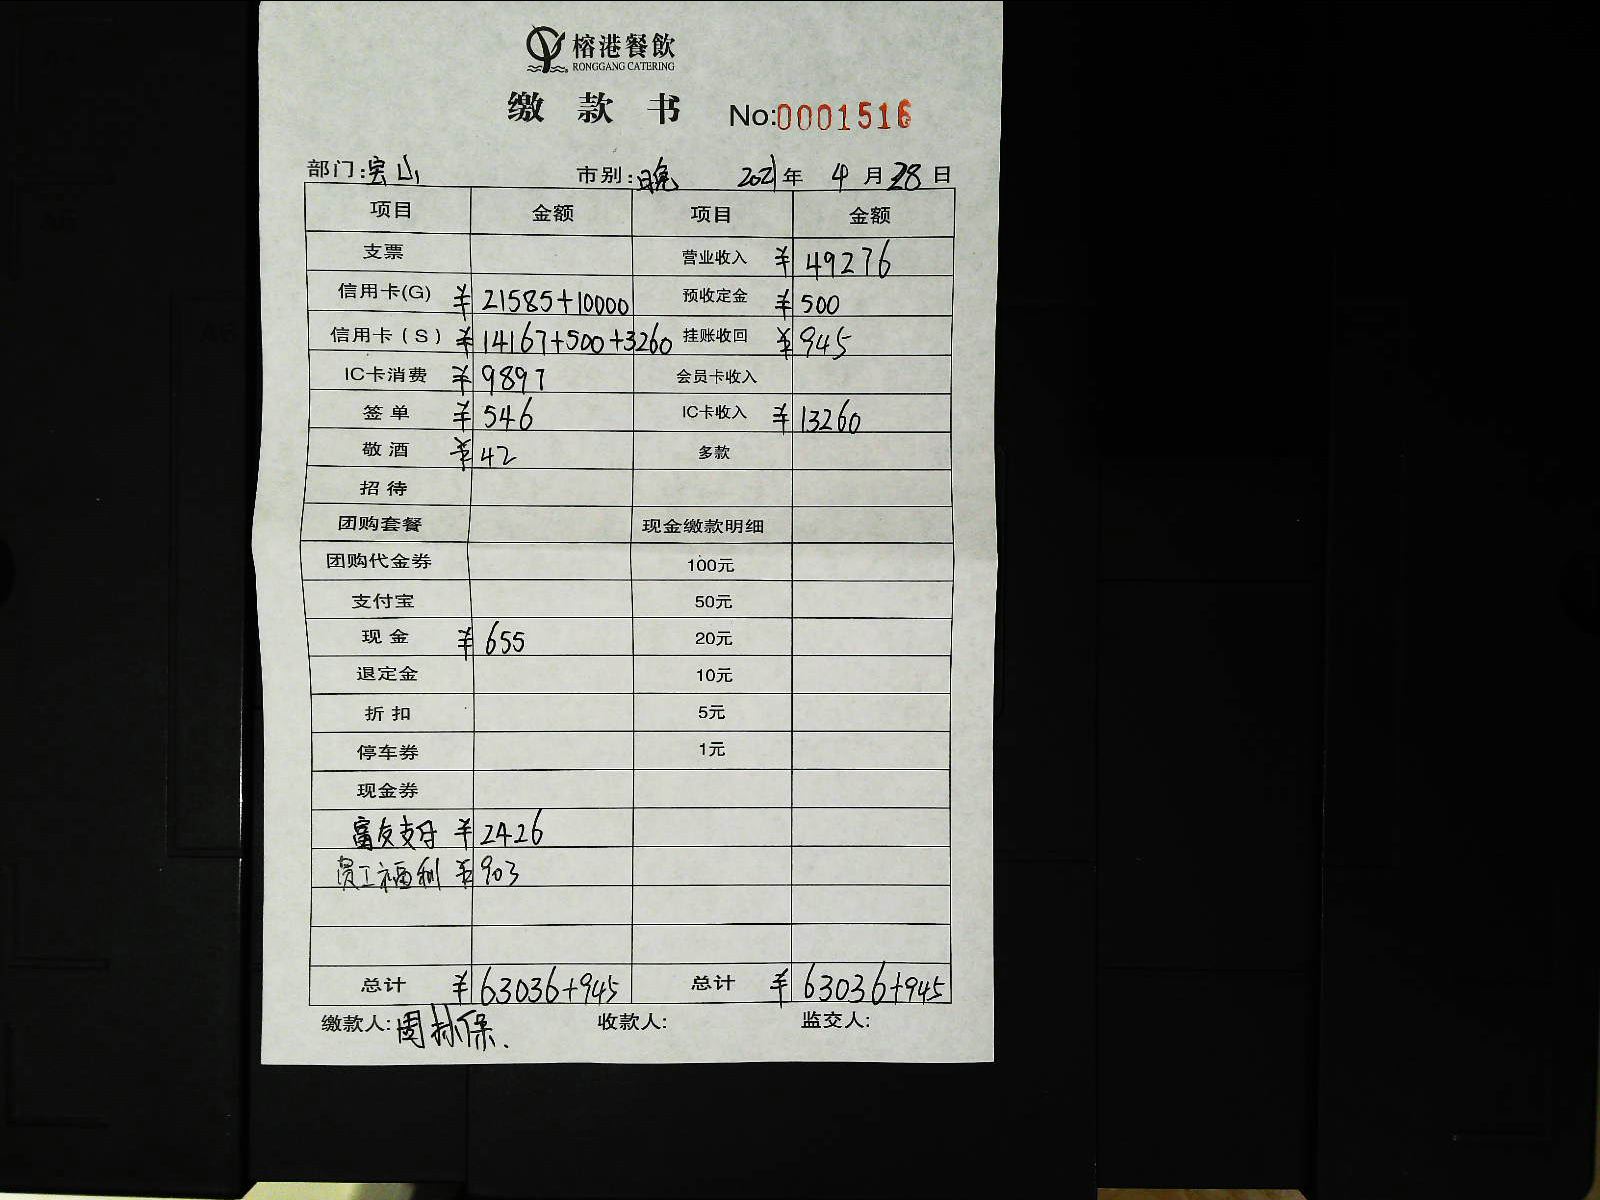 榕港餐飲
RONGGANG CATERING
缴款书 No:0001516
部门:宝山 市别:晚 2021年 4月28日
项目 金额 项目 金额
支票 营业收入 ¥49276
信用卡(G) ¥21585+10000 预收定金 ¥500
信用卡(S) ¥14167+500+3260 挂账收回 ¥945
IC卡消费 ¥9897 会员卡收入
签单 ¥546 IC卡收入 ¥13260
敬酒 ¥42 多款
招待
团购套餐 现金缴款明细
团购代金券 100元
支付宝 50元
现金 ¥655 20元
退定金 10元
折扣 5元
停车券 1元
现金券
富友支付 ¥2426
员工福利 ¥903
总计 ¥63036+945 总计 ¥63036+945
缴款人:周 保. 收款人: 监交人: